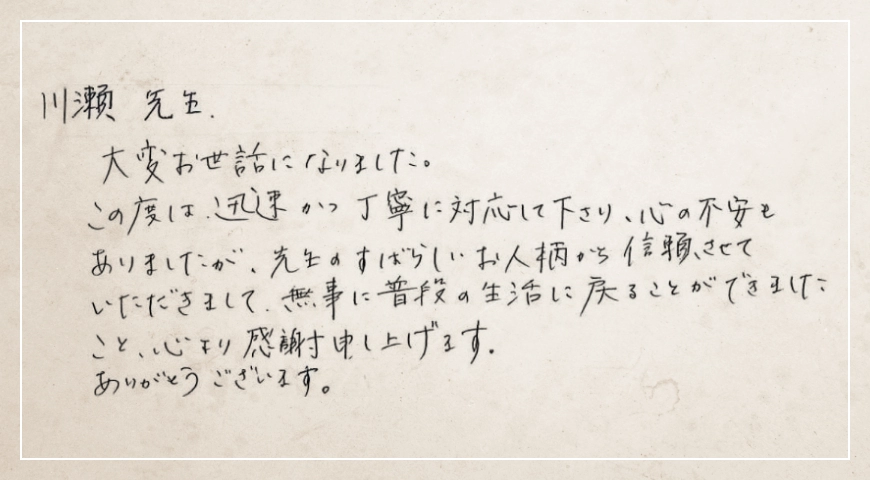 川瀬 先生.
大変お世話になりました。
この度は.迅速かつ丁寧に対応して下さり、心の不安も
ありましたが、先生のすばらしいお人柄から信頼させて
いただきまして、無事に普段の生活に戻ることができました
こと、心より感謝申し上げます.
ありがとうございます。